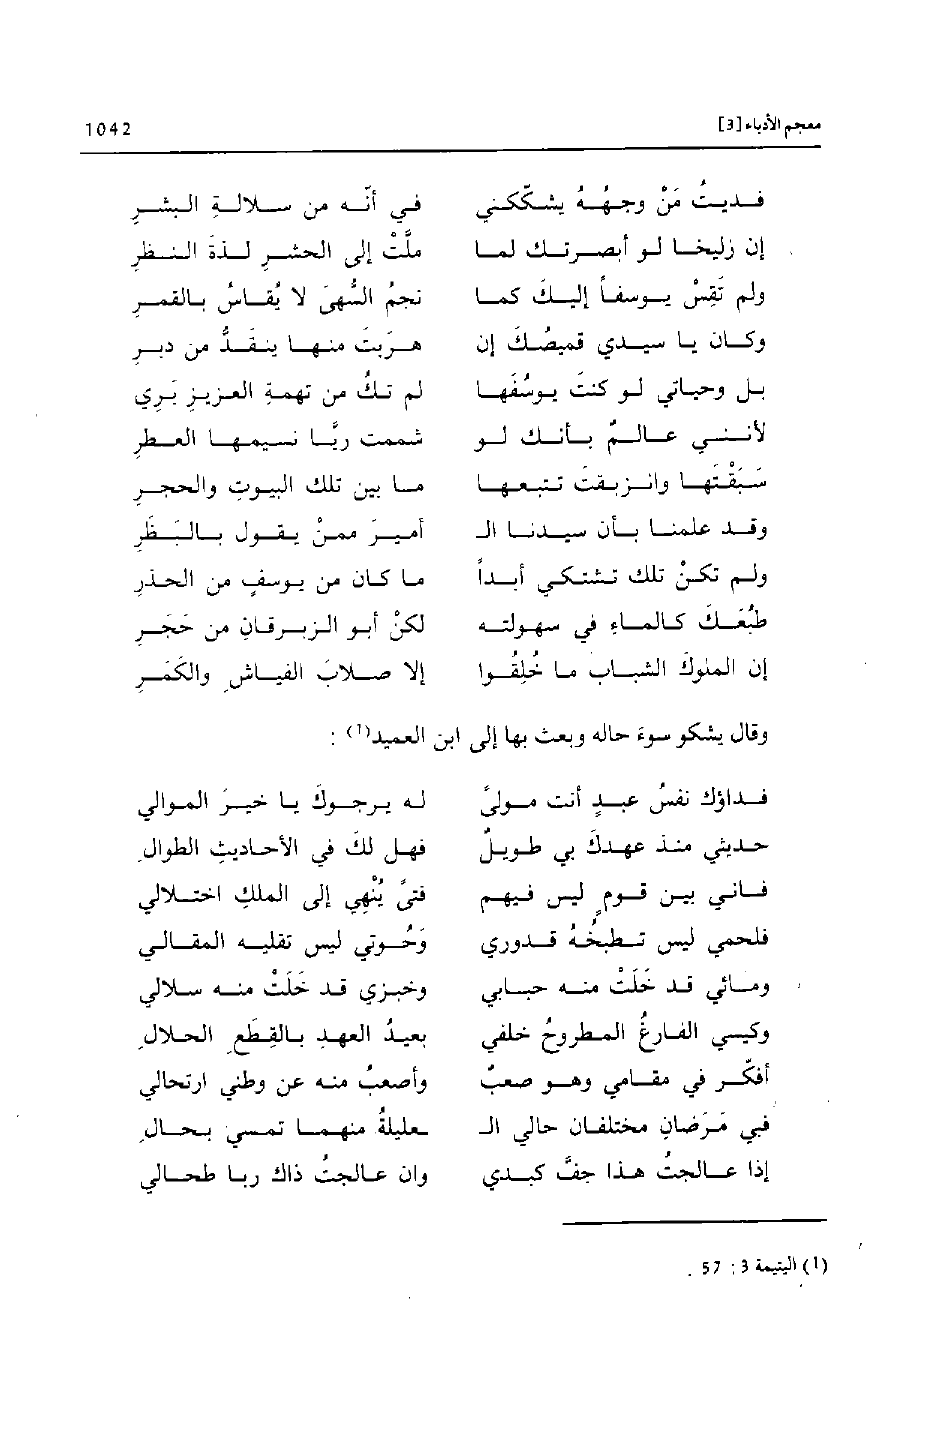 معجم الأدباء [3] 1042
فديتُ مَنْ وجهُهُ يشككني في أنّه من سلالة البشرِ
إن زليخا لو أبصرتك لما ملّتْ إلى الحشرِ لذةَ النظرِ
ولم تقِسْ يوسفاً إليك كما نجمُ السُّهَى لا يُقاسُ بالقمرِ
وكان يا سيدي قميصُكَ إن هربتَ منها ينقدُّ من دبرِ
بل وحياتي لو كنتَ يوسُفَها لم تكُ من تهمة العزيزِ بَرِي
لأنني عالمٌ بأنك لو شممت ريّا نسيمها العطرِ
سَبَقْتَها وانْزَبقتَ تتبعها ما بين تلك البيوت والحجرِ
وقد علمنا بأن سيدنا الـ أميرَ ممنْ يقول بالنَّظرِ
ولم تكنْ تلك تشتكي أبداً ما كان من يوسف من الحذرِ
طبْعُكَ كالماء في سهولته لكنْ أبو الزبرقان من حَجَرِ
إن الملوكَ الشباب ما خُلِقُوا إلا صلابَ الفياشِ والكَمَرِ
وقال يشكو سوء حاله وبعث بها إلى ابن العميد(١) :
فداؤك نفسُ عبدٍ أنت مولىً له يرجوكَ يا خيرَ الموالي
حديثي منذ عهدك بي طويلٌ فهل لك في الأحاديث الطوالِ
فإني بين قومٍ ليس فيهم فتىً يُنْهي إلى الملك اختلالي
فلحمي ليس تطبخُهُ قدوري وحُوتي ليس تقليه المقالي
ومائي قد خَلَتْ منه جبابي وخبزي قد خَلَتْ منه سلالي
وكيسي الفارغُ المطروحُ خلفي بعيدُ العهدِ بالقطعِ الحلالِ
أفكّر في مقامي وهو صعبٌ وأصعبُ منه عن وطني ارتحالي
فبي مرضان مختلفان حالي الـ عليلةُ منهما تمسي بحالِ
إذا عالجتُ هذا جفّ كبدي وان عالجتُ ذاك ربا طحالي
(١) اليتيمة 3 : 57 .